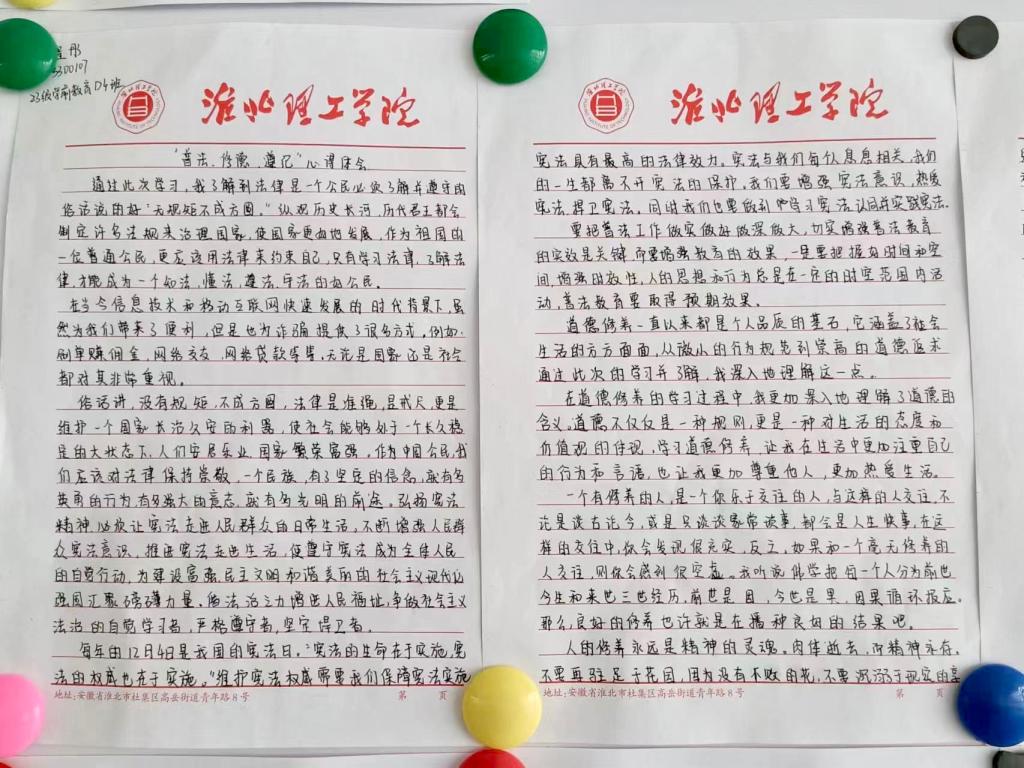 23级学前教育04班
淮北理工学院
“普法、修德、遵纪”心得体会
通过此次学习，我了解到法律是一个公民必须了解并遵守的
俗话说的好“无规矩不成方圆。”纵观历史长河，历代君王都会
制定许多法规来治理国家，使国家更好地发展，作为祖国的
一位普通公民，更应该用法律来约束自己，只有学习法律，了解法
律，才能成为一个知法，懂法，遵法，守法的好公民。
在当今信息技术和移动互联网快速发展的时代背景下，虽
然为我们带来了便利，但是也为诈骗提供了很多方式，例如：
刷单赚佣金，网络交友，网络贷款等等，无论是国家还是社会
都对其非常重视。
俗话讲，没有规矩，不成方圆，法律是准绳，是戒尺，更是
维护一个国家长治久安的利器，使社会能够处于一个长久稳
定的大状态下，人们安居乐业，国家繁荣富强，作为中国公民，我
们应该对法律保持崇敬，一个民族，有了坚定的信念，就有多
英勇的行为，有多强大的意志，就有多光明的前途。弘扬宪法
精神，必须让宪法走进人民群众的日常生活，不断增强人民群
众宪法意识，推进宪法走进生活，使遵守宪法成为全体人民
的自觉行动，为建设富强民主文明和谐美丽的社会主义现代化
强国汇聚磅礴力量。用法治之力增进人民福祉，争做社会主义
法治的自觉学习者，严格遵守者，坚定捍卫者。
每年的12月4日是我国的宪法日。“宪法的生命在于实施，宪
法的权威也在于实施。”维护宪法权威需要我们保障宪法实施
地址：安徽省淮北市杜集区高岳街道青年路8号 第 页
淮北理工学院
宪法具有最高的法律效力。宪法与我们每个人息息相关，我们
的一生都离不开宪法的保护。我们要增强宪法意识，热爱
宪法，捍卫宪法。同时我们也要做到学习宪法，认同并实践宪法。
要把普法工作做实做好做深做大，切实增强普法教育
的实效是关键，而要增强教育的效果，一是要把握好时间和空
间，增强时效性，人的思想和行为总是在一定的时空范围内活
动，普法教育要取得预期效果。
道德修养一直以来都是个人品质的基石，它涵盖了社会
生活的方方面面，从微小的行为规范到崇高的道德追求
通过此次的学习并了解，我深入地理解这一点。
在道德修养的学习过程中，我更加深入地理解了道德的
含义。道德不仅仅是一种规则，更是一种对生活的态度和
价值观的体现，学习道德修养，让我在生活中更加注重自己
的行为和言语，也让我更加尊重他人，更加热爱生活。
一个有修养的人，是一个你乐于交往的人，与这样的人交往，不
论是谈古论今，或是只谈谈家常琐事，都会是人生快事，在这
样的交往中，你会发现很充实，反之，如果和一个毫无修养的
人交往，则你会感到很空虚。我听说佛学把每一个人分为前世
今生和来世三世经历，前世是因，今世是果，因果循环报应。
那么，良好的修养也许就是在播种良好的结果吧。
人的修养永远是精神的灵魂，肉体逝去，而精神永存。
不要再驻足于花园，因为没有不败的花，不要沉溺于现实的享
地址：安徽省淮北市杜集区高岳街道青年路8号 第 页